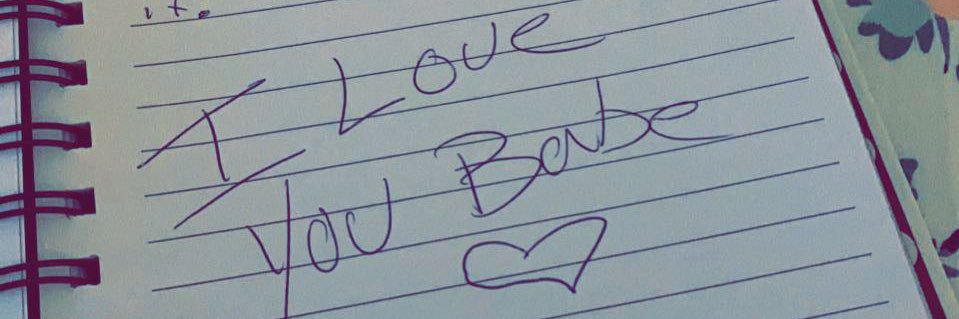 it.
I Love
You Babe